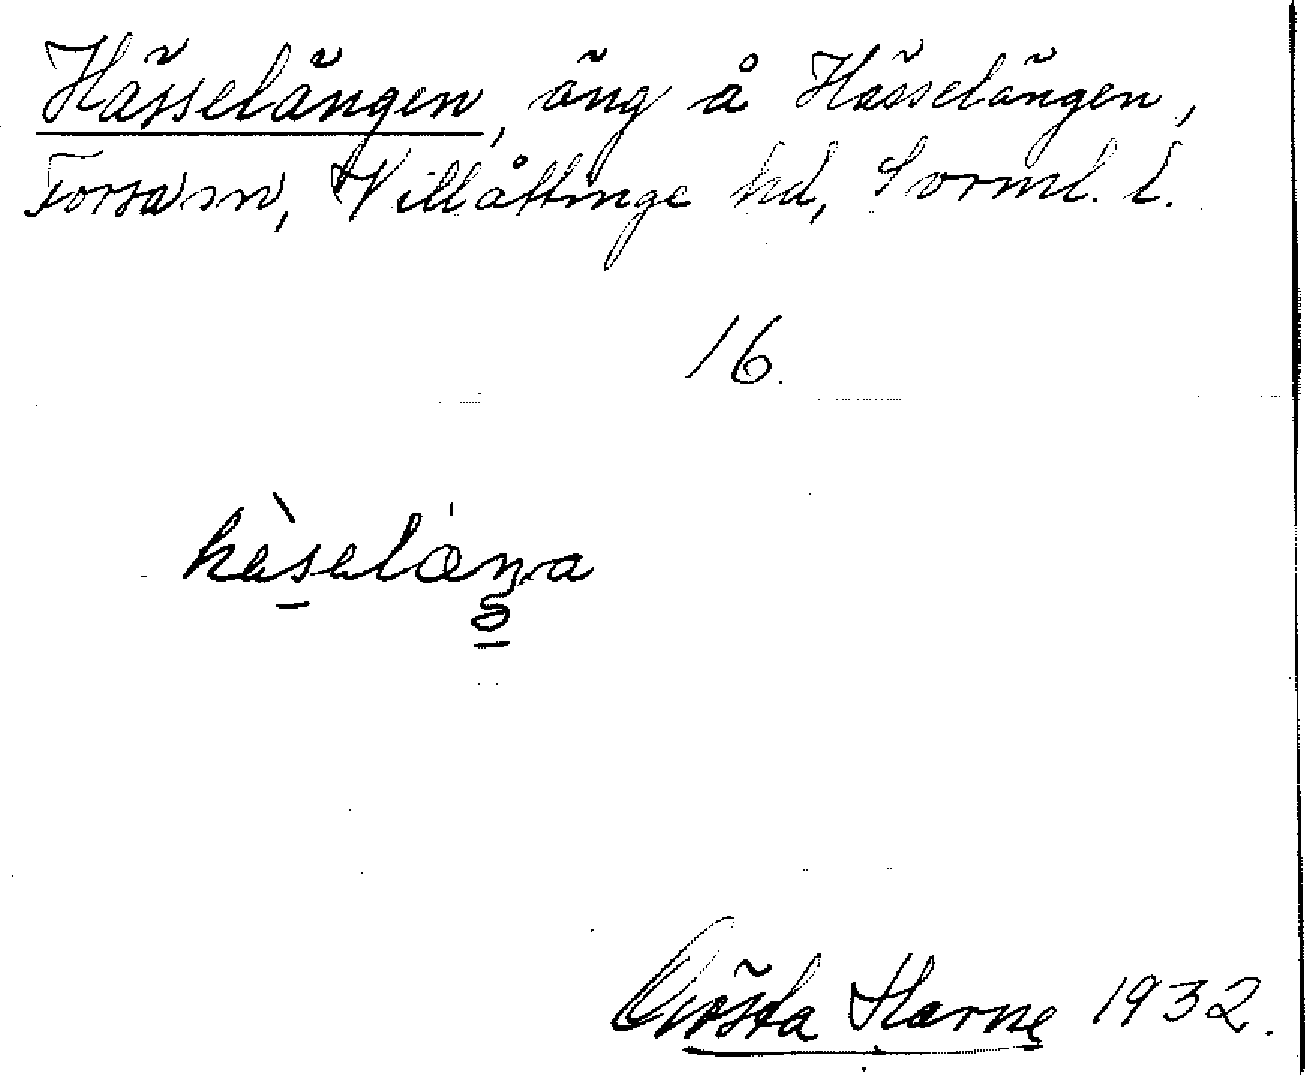 Hässelängen, äng å Hässelängen,
Forssa sn, Villåttinge hd, Sörml. l.
16.
hàsəlæŋa
Gösta Harne 1932.